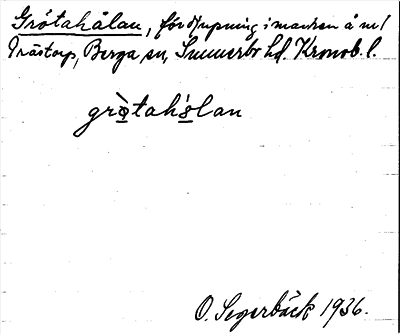 Grötahålan, fördjupning i marken å n:1
Trästorp, Berga sn, Sunnerbo hd. Kronob. l.
grò̲tahó̲lan
O. Segerbäck 1936.